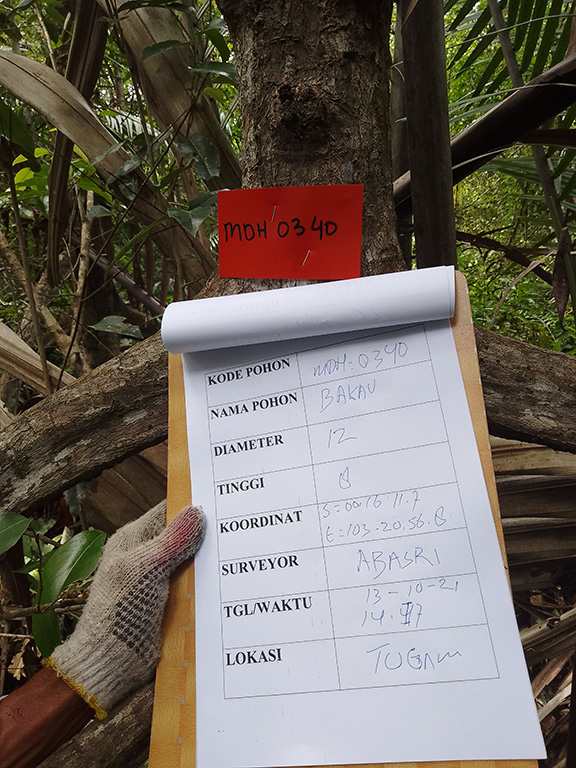 MDH 0340
KODE POHON MDH-0340
NAMA POHON BAKAU
DIAMETER 12
TINGGI 8
KOORDINAT S=00.16.11.7
E=103.20.56.8.
SURVEYOR ABASRI
TGL/WAKTU 13-10-21
14.
LOKASI